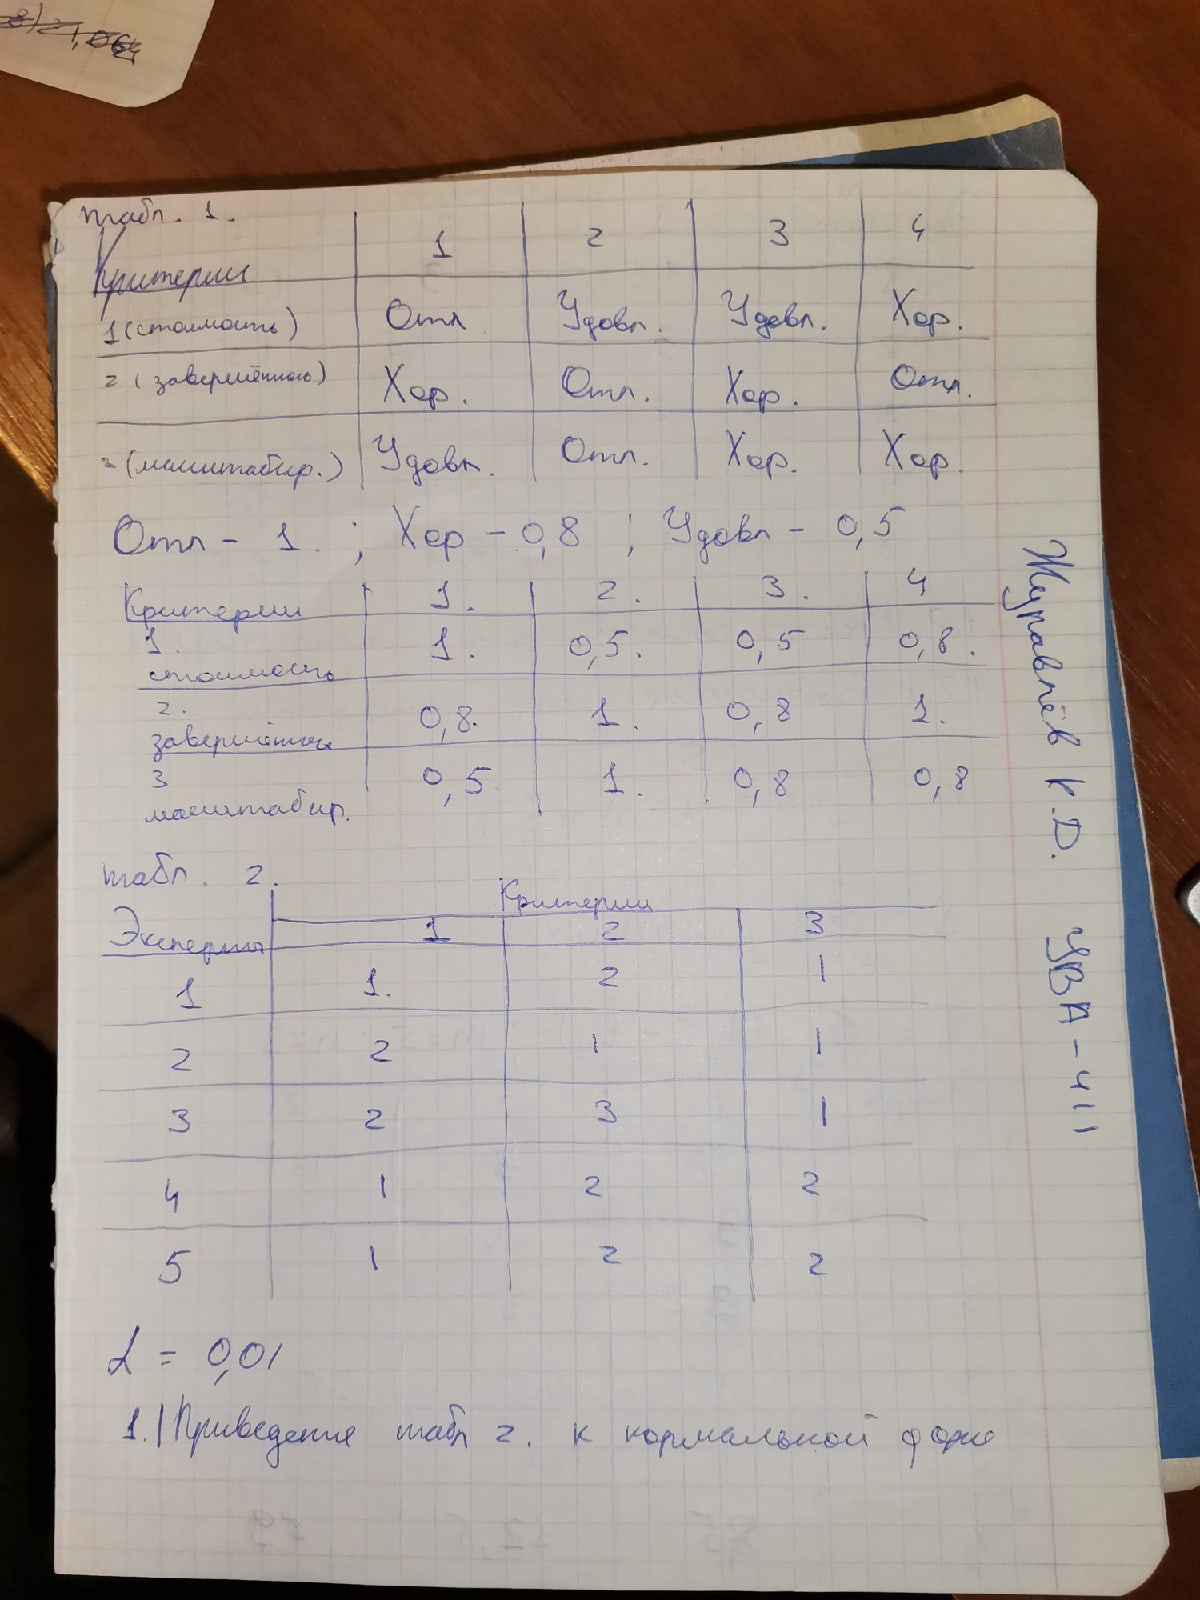 табл. 1.
Критерии 1 2 3 4
1 (стоимость) Отл Удовл. Удовл. Хор.
2 (завершённость) Хор. Отл. Хор. Отл.
(масштабир.) Удовл. Отл. Хор. Хор.
Отл - 1. ; Хор - 0,8 ; Удовл - 0,5
Критерии 1. 2. 3. 4
1. стоимость 1. 0,5. 0,5 0,8.
2. завершённость 0,8. 1. 0,8 1.
3 масштабир. 0,5 1. 0,8 0,8
табл. 2.
Эксперты Критерии
1 2 3
1 1. 2 1
2 2 1 1
3 2 3 1
4 1 2 2
5 1 2 2
α = 0,01
1.) Приведение табл 2. к нормальной форме
Журавлёв К.Д. УВА-411